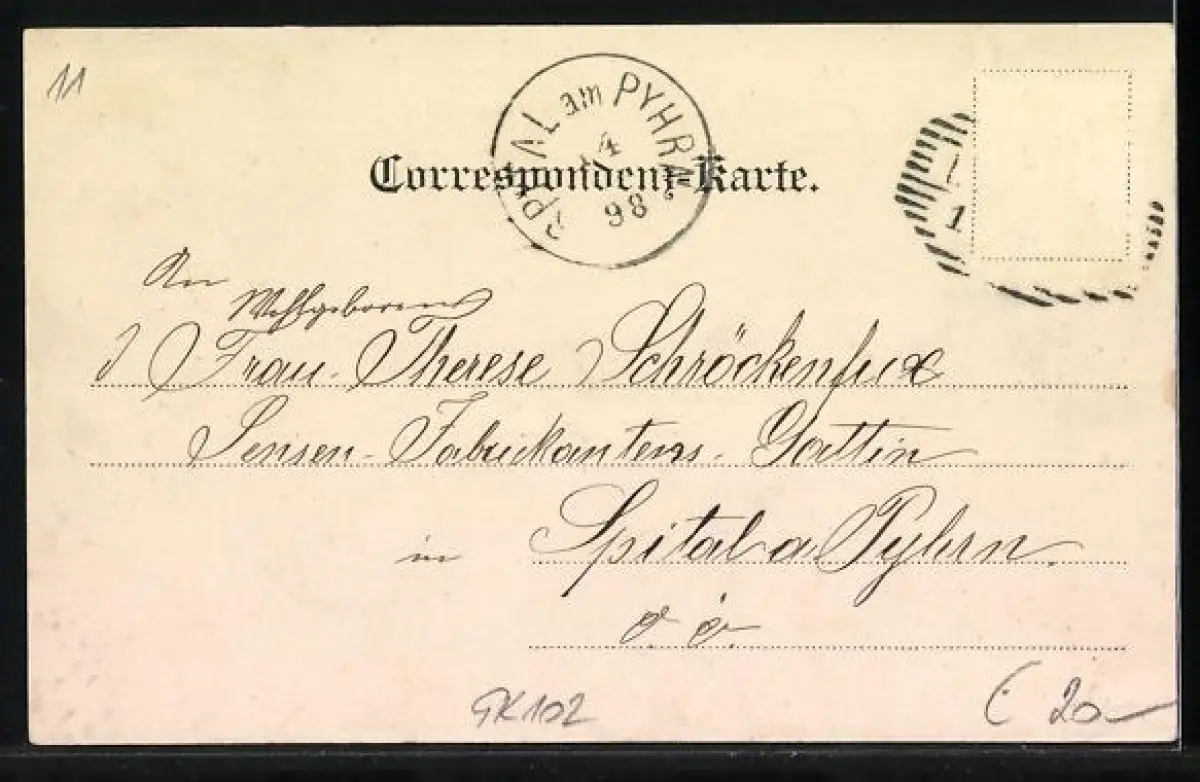 11
SPITAL am PYHRN
4
98
Correspondenz-Karte.
1
An
Wohlgeboren
Frau Therese Schröckenfux
Sensen-Fabrikantens-Gattin
in Spital a Pyhrn.
O. Ö.
GK102
20